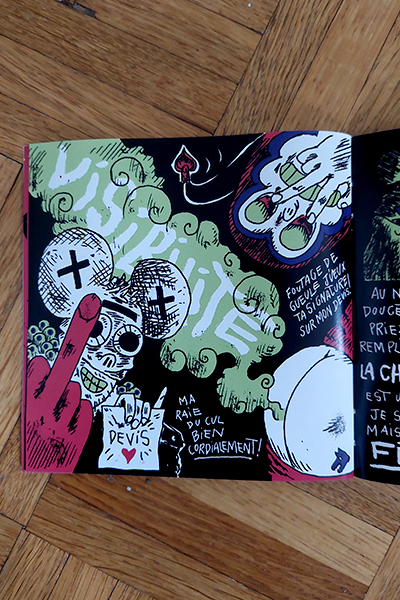 VISIBILITÉ
FOUTAGE DE
GUEULE, J'VEUX
TA SIGNATURE
SUR MON DEVIS
MA
RAIE
DU CUL
BIEN
CORDIALEMENT!
DEVIS
AU N
DOUCE
PRIE
REMPL
LA CH
EST U
JE S
MAIS